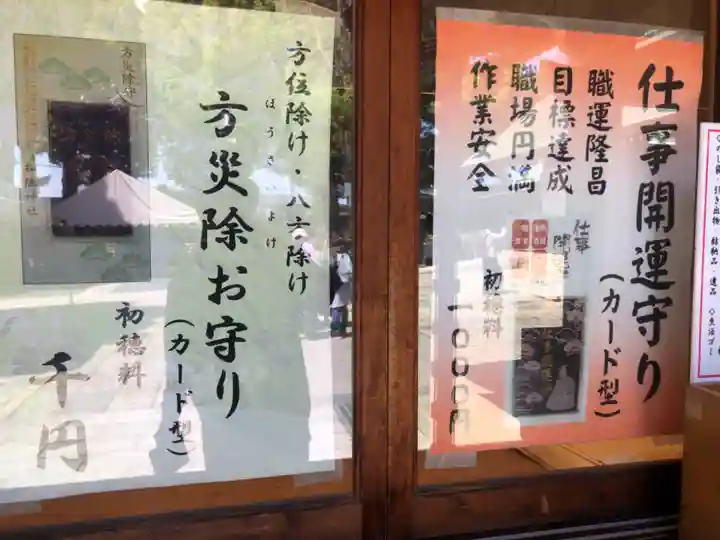 仕事開運守り
(カード型)
職運隆昌
目標達成
職場円満
作業安全
仕事
初穂料
一〇〇〇円
方位除け・八方除け
ほうさいよけ
方災除お守り
(カード型)
初穂料
千円
方災除守